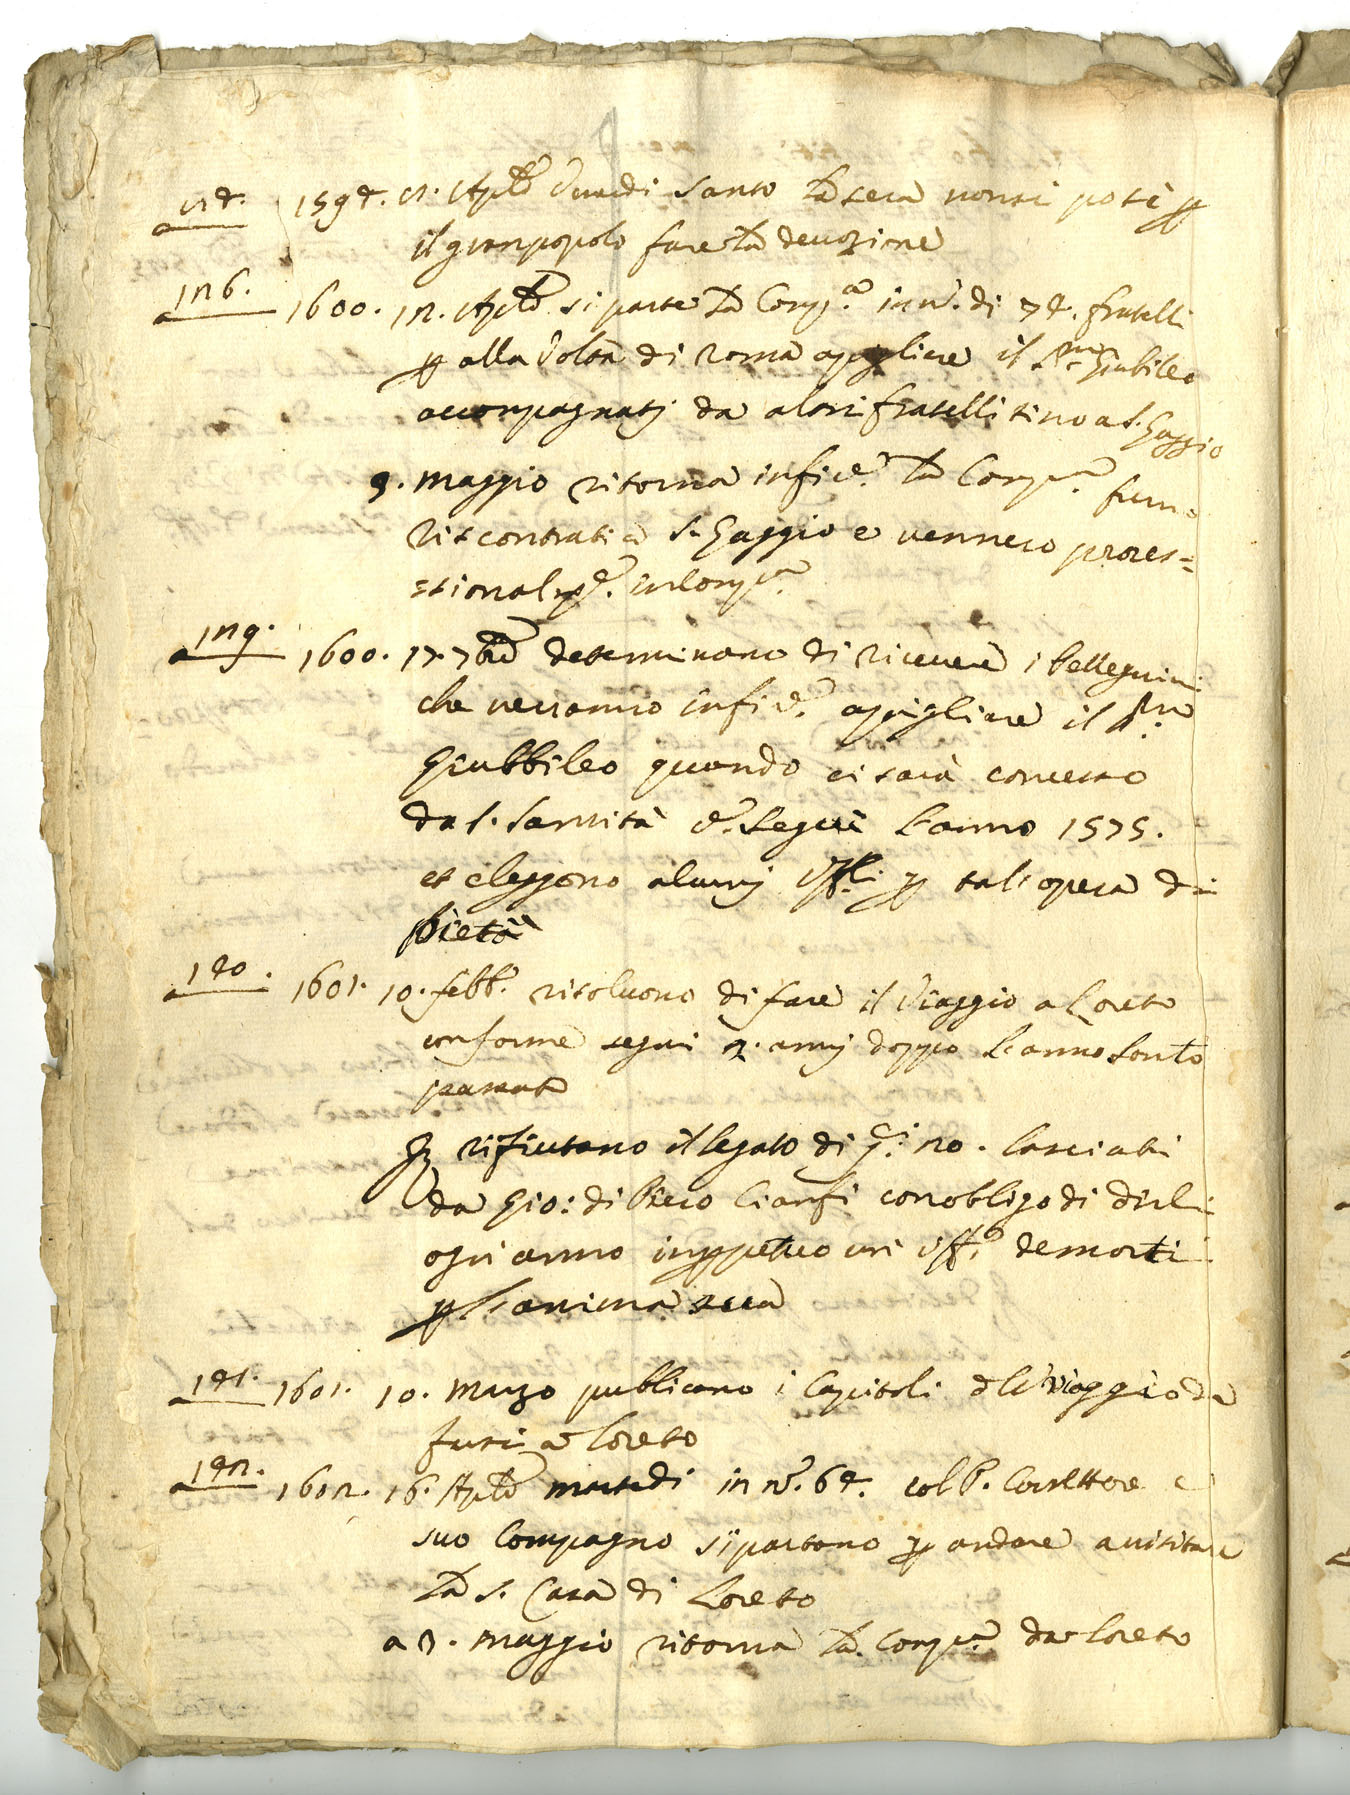 1594. Aple Venerdi Santo la sera non si potè p
il gran popolo fare la devozione
126. 1600. 12. Aple si parte la Comp.a in n.o di 74. fratelli
p alla volta di Roma a pigliare il S.mo Giubileo
accompagnatj da altri fratelli sino a S. Gaggio
9. Maggio ritorna in fir.e la Comp.a furn.o
riscontrati a S. Gaggio e vennero proces=
=sionalm.e in Comp.a
129. 1600. 17. 7bre determinano di ricevere i Pellegrini
che verranno in fir.e a pigliare il S.mo
Giubbileo quando ci sarà concesso
da S. Santità e. seguì l'anno 1575.
et eleggono alcunj Uffi.li p tal'opera di
Pietà
140. 1601. 10. febb.o risoluono di fare il Viaggio a Loreto
conforme seguì 2. annj doppo l'anno Santo
passato
rifiutano il legato di 20. lasciati
da Gio: di Piero Cianfi con obbligo di dirli
ogni anno in ppetuo un Uff.o de morti
p l'anima sua
141. 1601. 10. Marzo publicano i Capitoli del Viaggio da
farsi a Loreto
142. 1602. 16. Aple martedi in n.o 64. col P. Corettore e
suo Compagno si partono p andare a visitare
la S. Casa di Loreto
a 3. Maggio ritorna la Comp.a da Loreto